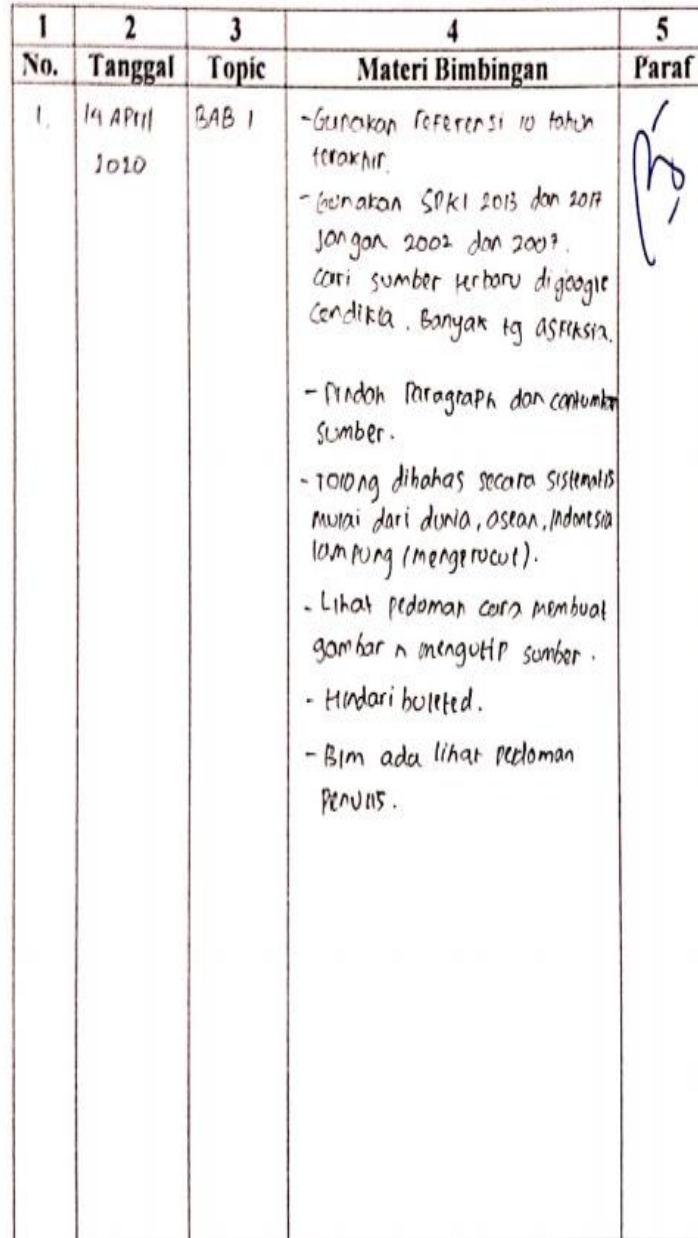 1 2 3 4 5
No. Tanggal Topic Materi Bimbingan Paraf
1. 14 April 2020 BAB 1 -Gunakan referensi 10 tahun
terakhir.
-Gunakan SDKI 2013 dan 2017
Jangan 2002 dan 2007.
cari sumber terbaru digoogle
Cendikia. Banyak tg asfiksia.
- Pindah Paragraph dan cantumkan
Sumber.
- Tolong dibahas secara sistematis
mulai dari dunia, asean, Indonesia
lampung (mengerucut).
- Lihat pedoman cara membuat
gambar n mengutip sumber.
- Hindari bulleted.
- Blm ada lihat pedoman
Penulis.